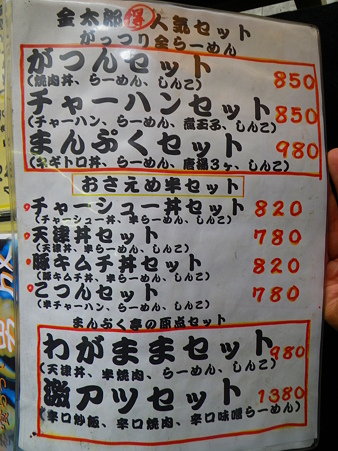 金太郎㊝人気セット
がっつり全らーめん
がつんセット 850
(焼肉丼、らーめん、しんこ)
チャーハンセット 850
(チャーハン、らーめん、煮玉子、しんこ)
まんぷくセット 980
(ネギトロ丼、らーめん、唐揚3ヶ、しんこ)
おさえめ半セット
チャーシュー丼セット 820
(チャーシュー丼、半らーめん、しんこ)
天津丼セット 780
(天津丼、半らーめん、しんこ)
豚キムチ丼セット 820
(豚キムチ丼、半らーめん、しんこ)
こつんセット 780
(半チャーハン、らーめん、しんこ)
まんぷく亭の原点セット
わがままセット 980
(天津丼、半焼肉、らーめん、しんこ)
激アツセット 1380
(辛口炒飯、辛口焼肉、辛口味噌らーめん)